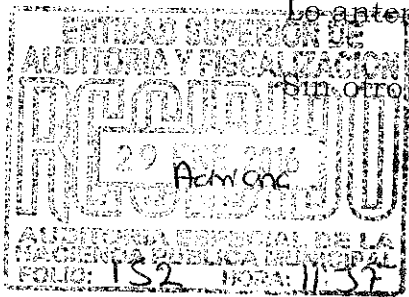 Lo ante
ENTIDAD SUPERIOR DE
AUDITORIA Y FISCALIZACION
Sin otro
RECIBIDO
29 2016
Adriana
AUDITORIA ESPECIAL DE LA
HACIENDA PUBLICA MUNICIPAL
FOLIO: 152 HORA: 11:37